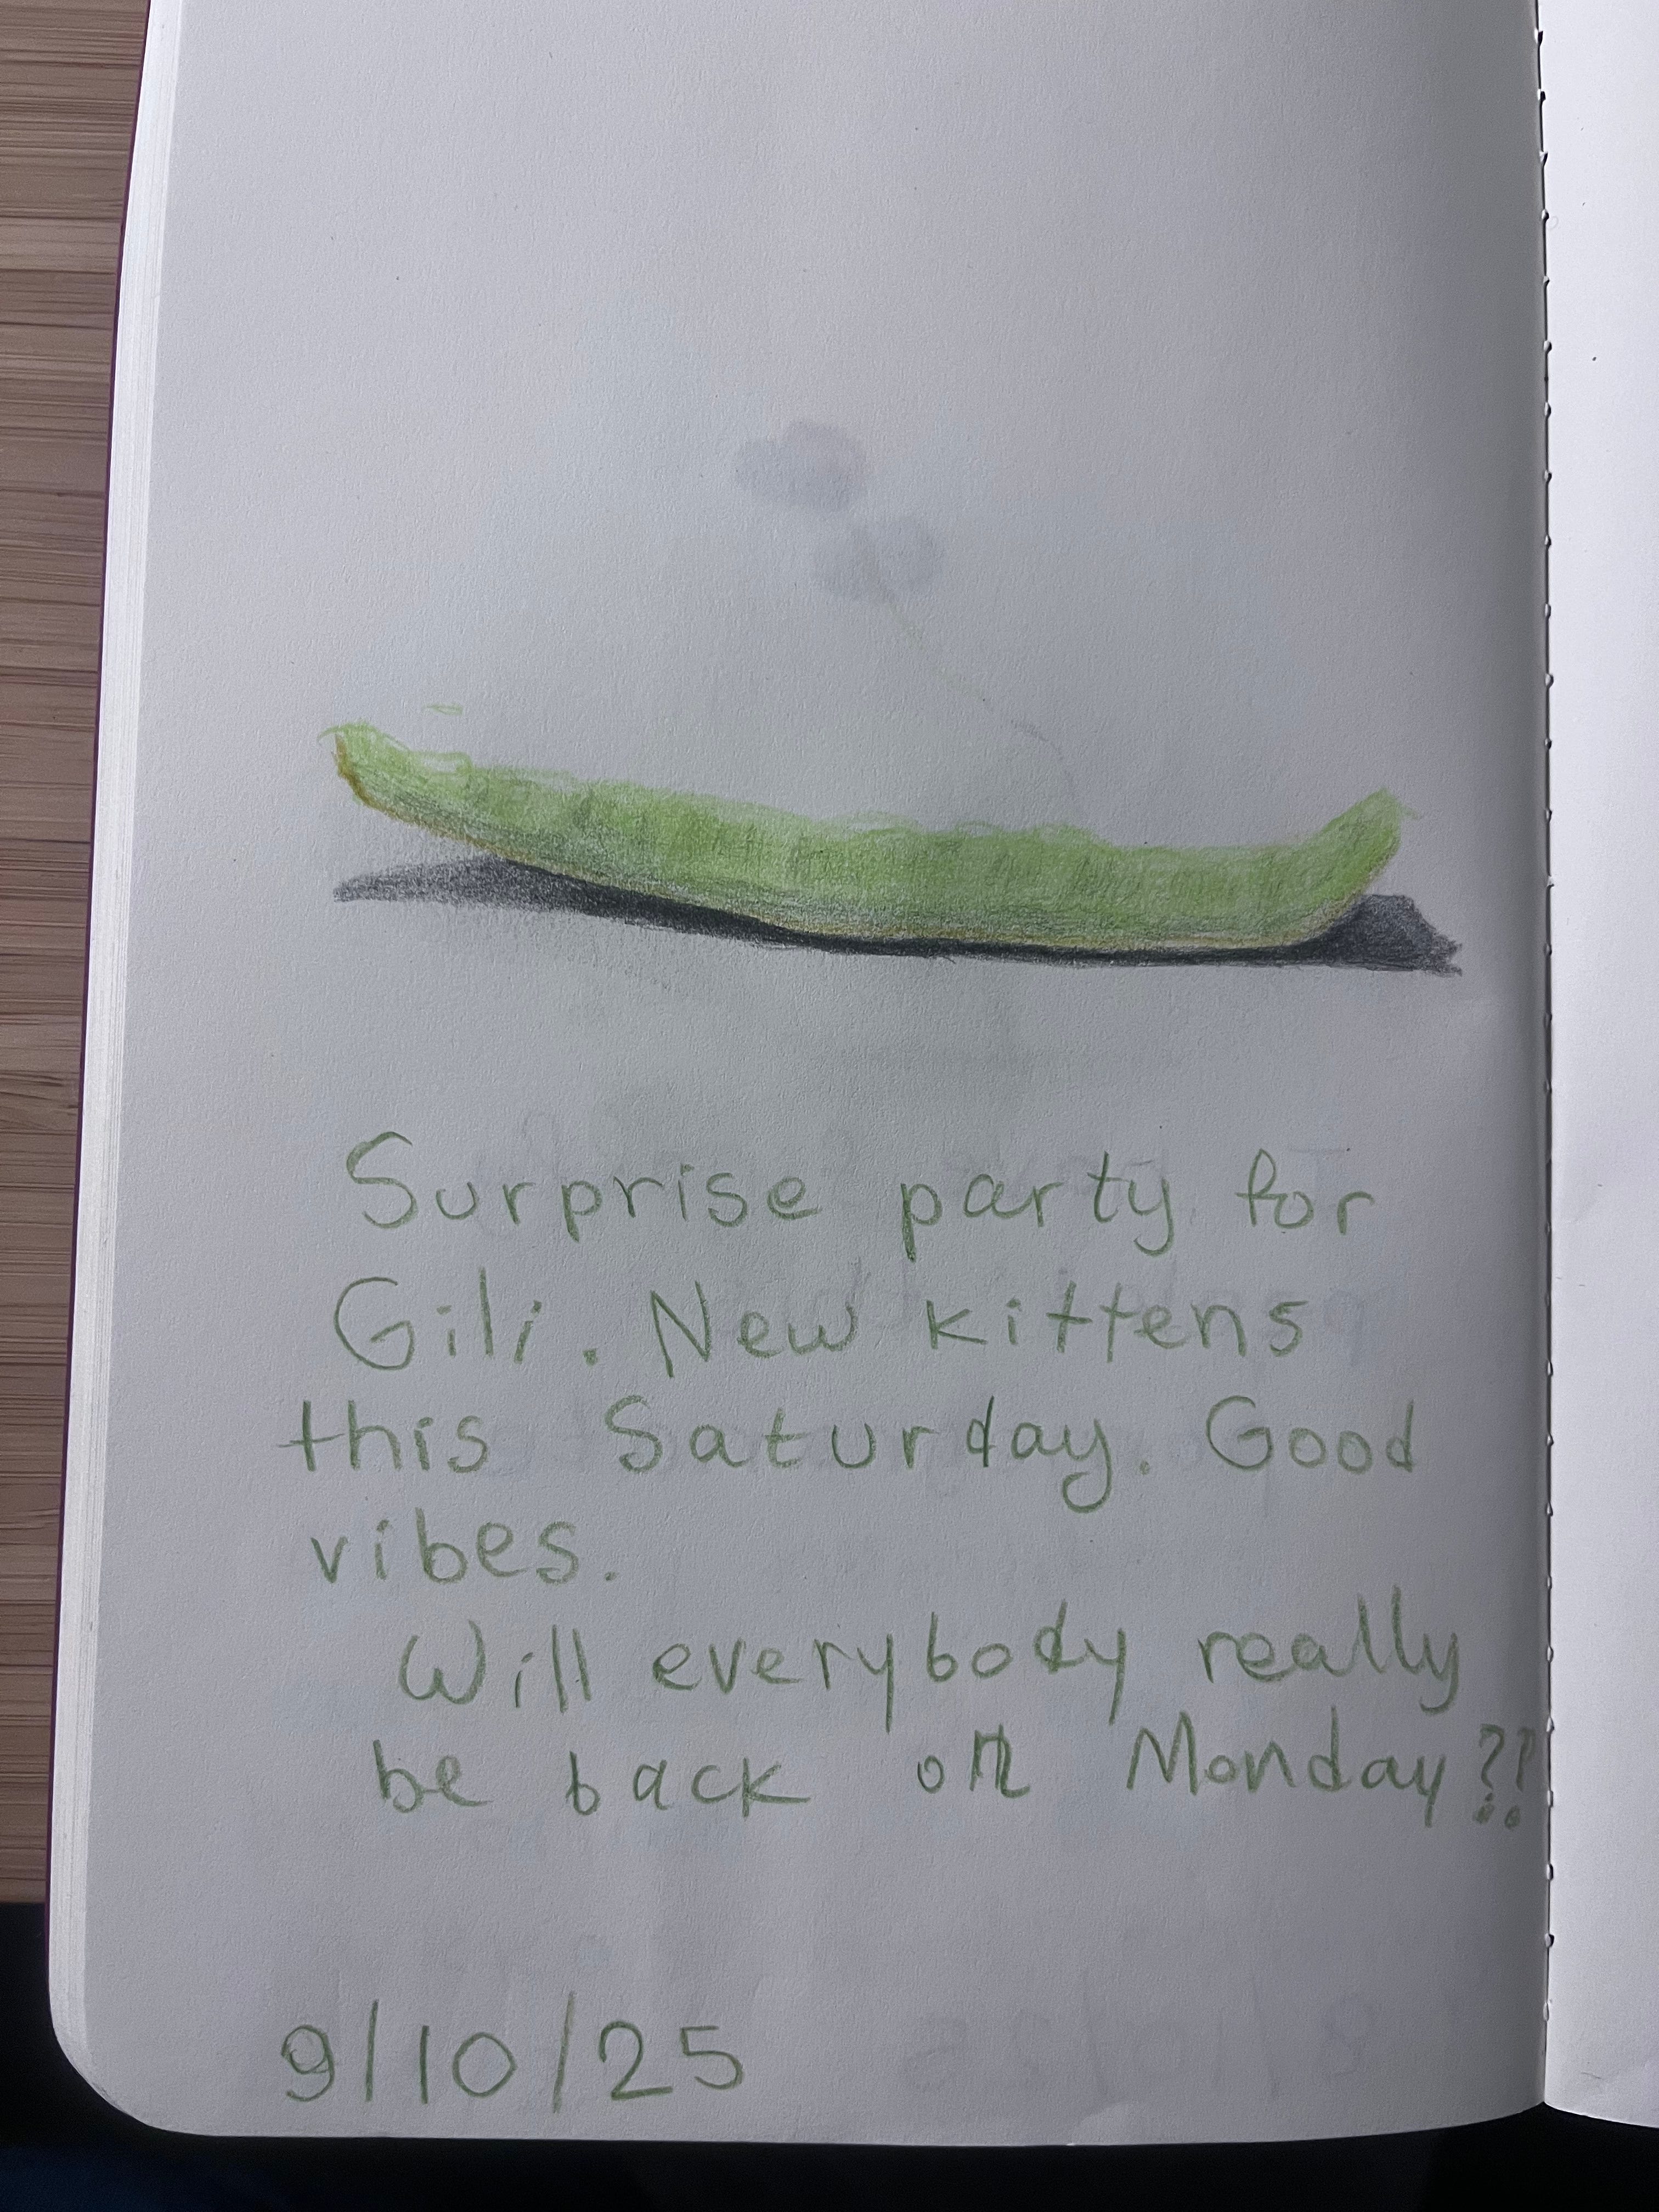 Surprise party for
Gili. New kittens
this Saturday. Good
vibes.
Will everybody really
be back on Monday??
9/10/25